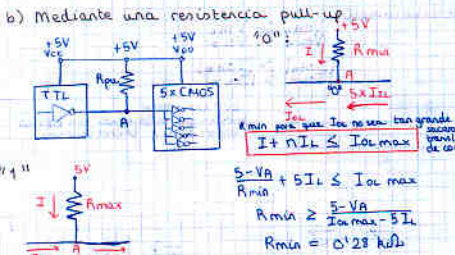 b) Mediante una resistencia pull-up
+5V
Vcc
+5V
+5V
VDD
Rpu
TTL
A
5xCMOS
"0":
+5V
I
Rmin
A
"0"
IOL
5xIIL
Rmin para que IOL no sea tan grande
I + nIL ≤ IOL max
"1"
5V
I
Rmax
A
5-VA
Rmin
+ 5IL ≤ IOL max
Rmin ≥
5-VA
IOL max - 5IL
Rmin = 0'28 kΩ